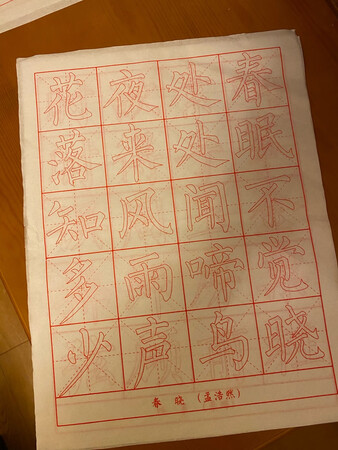 春眠不觉晓
处处闻啼鸟
夜来风雨声
花落知多少
春 晓 (孟浩然)